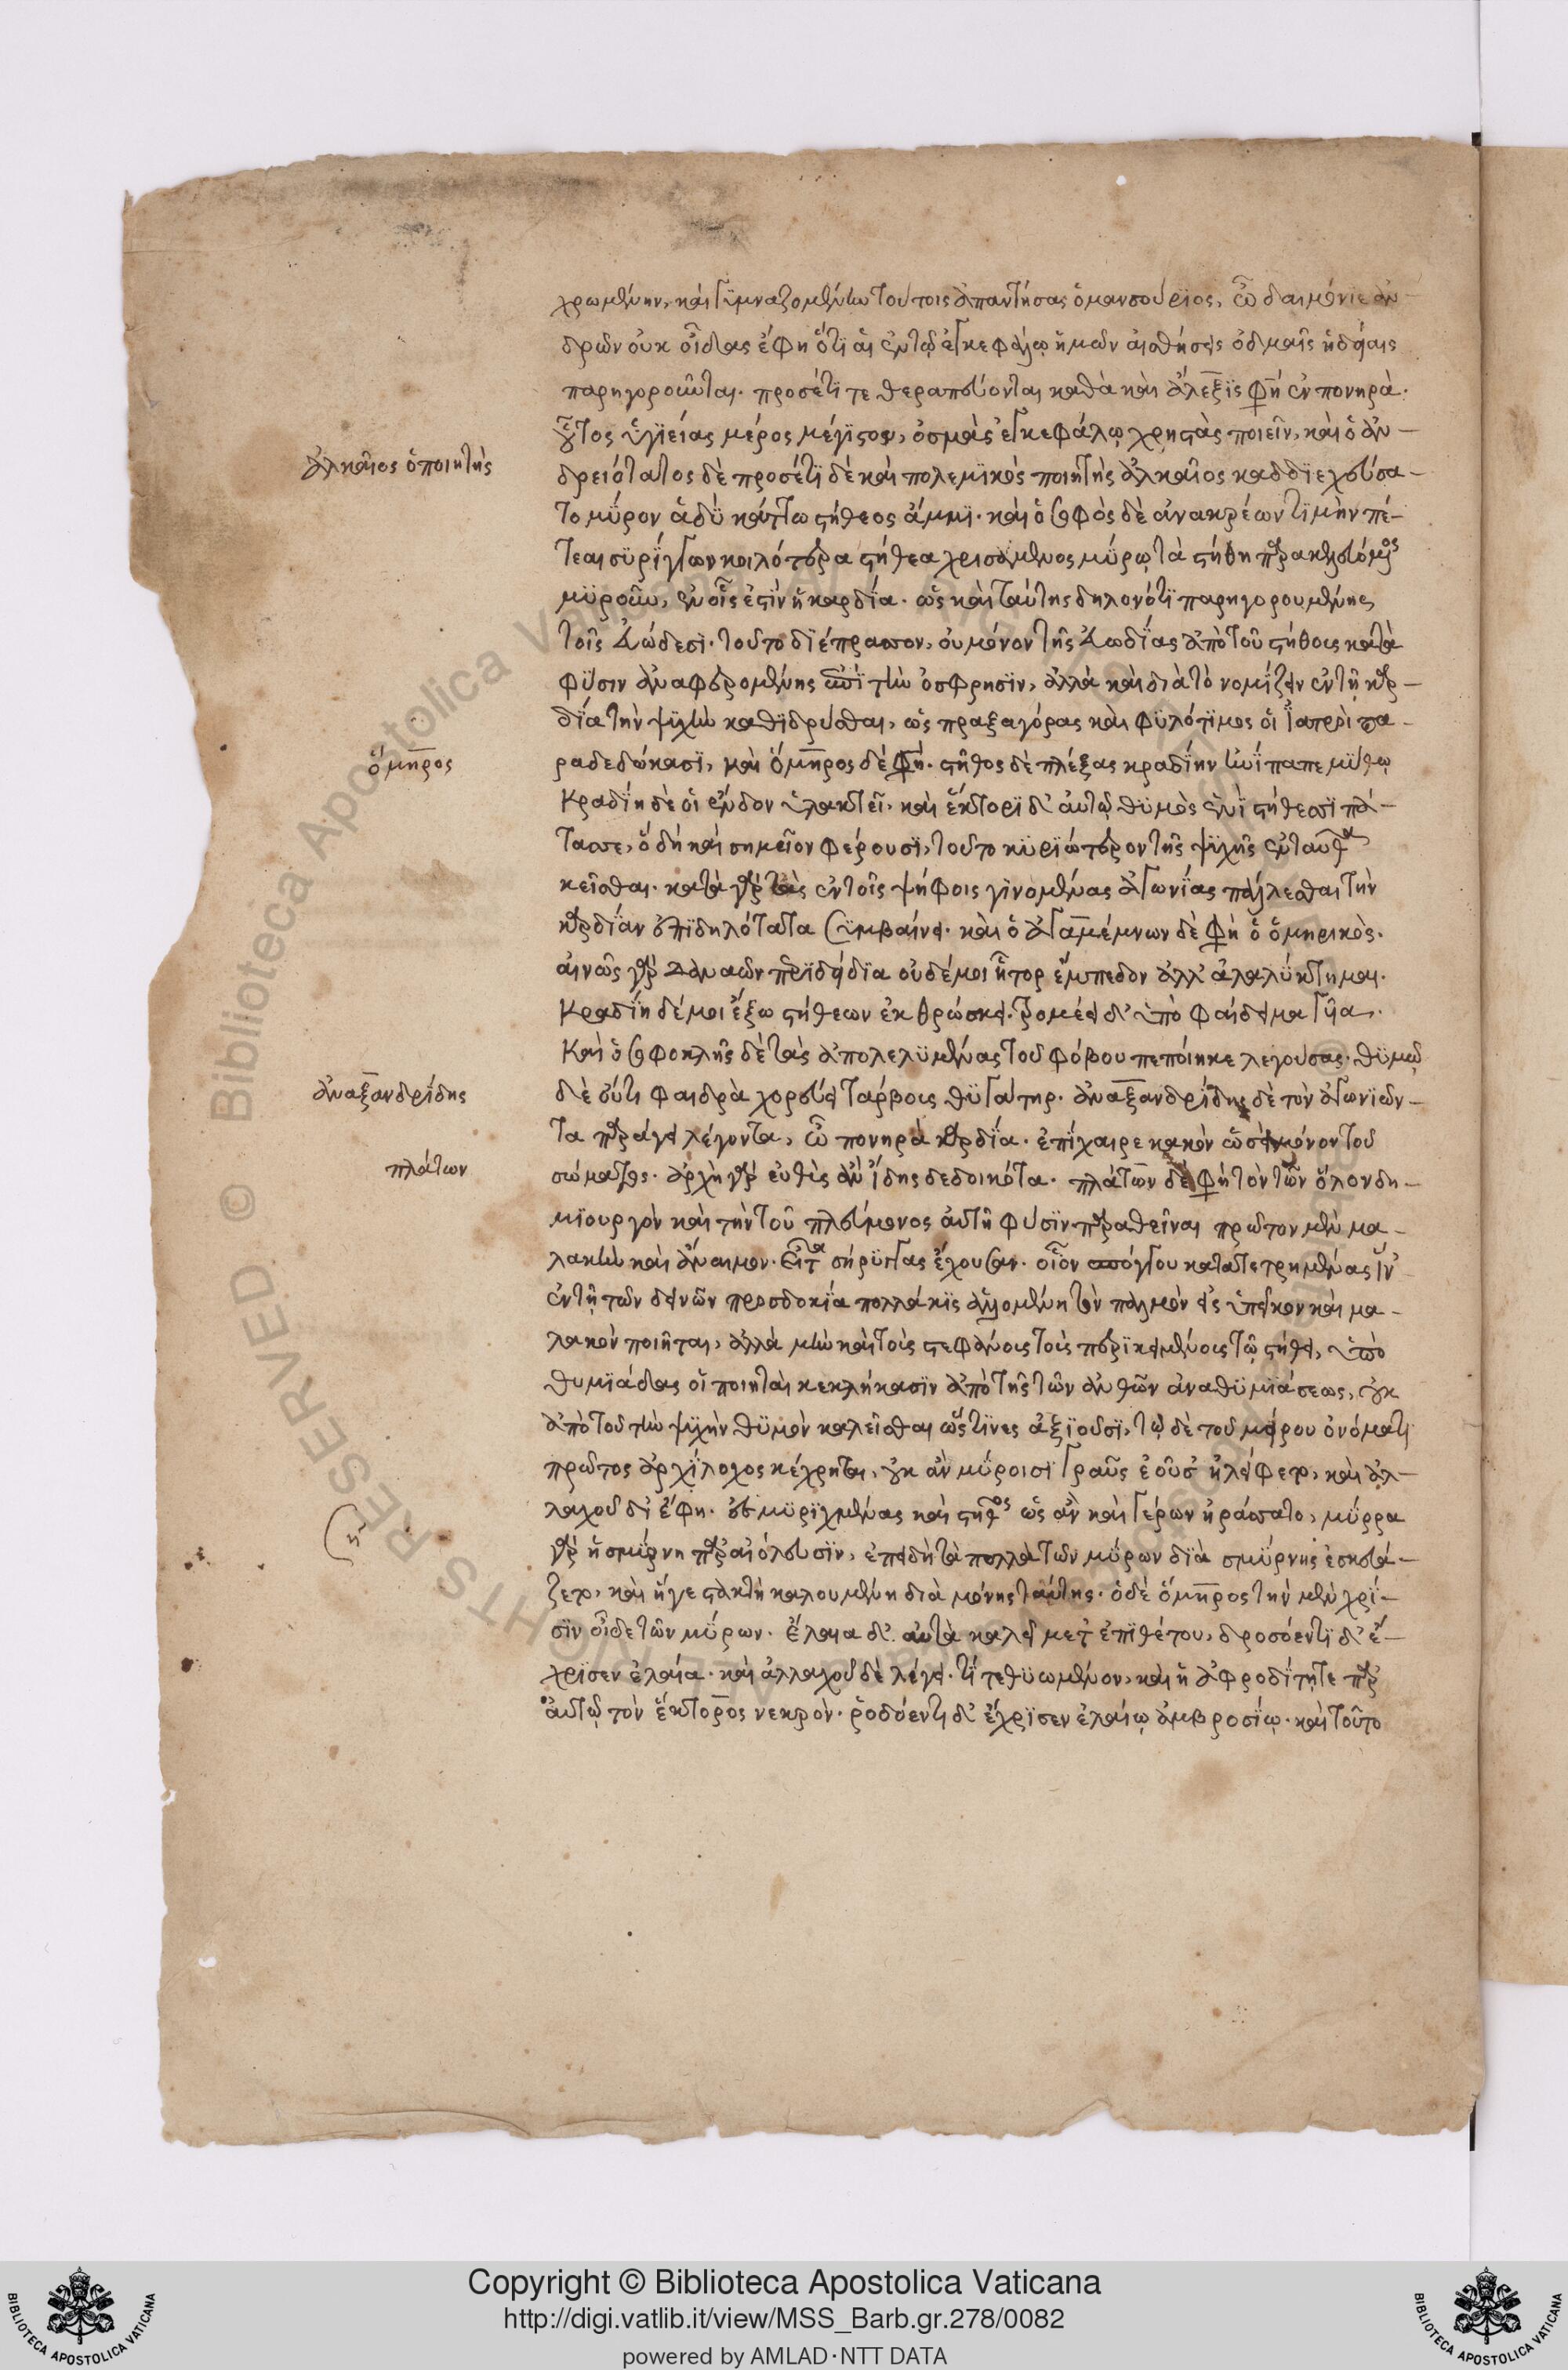 χρωμένην, καὶ γϋμναζομένω τούτοις ἀπαντήσας ὁ μανσούριος, ὦ δαιμόνιε ἀν-
δρῶν οὐκ οἶδας ἔφη ὅτι αἱ ἐν τῷ ἐγκεφάλῳ ἡμῶν αἰσθήσεις ὀδμαῖς ἡδείαις
παρηγοροῦνται. προσέτι τε θεραπεύονται καθὰ καὶ ἄλεξϊς φη ἐν πονηρᾷ.
οὗτος ὑγϊείας μέρος μέγϊστον, ὀσμὰς ἐγκεφάλῳ χρηστὰς ποιεῖν, καὶ ὁ ἀν-
ἀλκαῖος ὁ ποιητὴς
δρειότατος δὲ προσέτι δὲ καὶ πολεμϊκὸς ποιητὴς ἀλκαῖος καδδϊεχευσα-
το μῦρον ἁδὺ κάττω στήθεος ἄμμϊ. καὶ ὁ σοφὸς δὲ ἀνακρέων τϊ μὴν πέ-
τεαι συρίγγων κοιλότερα στήθεα χρισάμενος μύρῳ τὰ στήθη παρακελευόμενος
μϋροῦν, ἐν οἷς ἐστὶν ἡ καρδία. ὡς καὶ ταύτης δηλονότϊ παρηγορουμένης
τοῖς εὐώδεσϊ. τοῦτο δϊέπρασσον, οὐ μόνον τῆς εὐωδίας ἀπὸ τοῦ στήθους κατὰ
φύσιν ἀναφερομένης ἐπὶ τὴν ὄσφρησϊν, ἀλλὰ καὶ διὰ τὸ νομίζειν ἐν τῇ καρ-
δίᾳ τὴν ψϋχὴν καθϊδρύσθαι, ὡς πραξαγόρας καὶ φϋλότϊμος οἱ ἰατροὶ πα-
ὅμηρος
ραδεδώκασϊ, καὶ ὅμηρος δέ φη. στῆθος δὲ πλέξας κραδίην ἠνίπαπε μύθῳ
κραδίη δὲ οἱ ἔνδον ὑλακτεῖ. καὶ ἕκτορϊ δ' αὐτῷ θυμὸς ἐνὶ στήθεσϊ πά-
τασσε, ὃ δὴ καὶ σημεῖον φέρουσϊ, τοῦ τὸ κϋρϊώτερον τῆς ψϋχῆς ἐνταῦθα
κεῖσθαι. κατὰ γὰρ τὰς ἐν τοῖς ψήφοις γινομένας ἀγωνίας πάλλεσθαι τὴν
καρδίαν ἐπϊδηλότατα συμβαίνει. καὶ ὁ ἀγαμέμνων δὲ φη ὁ ὁμηρικὸς.
αἰνῶς γὰρ Δαναῶν περϊδείδια οὐδέ μοι ἦτορ ἔμπεδον ἀλλ' ἀλαλύκτημαι.
κραδίη δέ μοι ἔξω στήθεων ἐκθρώσκει. τρομέει δ' ὑπὸ φαίδιμα γῦα.
καὶ ὁ σοφοκλῆς δὲ τὰς ἀπολελϋμένας τοῦ φόβου πεποίηκε λεγούσας. θϋμῷ
ἀναξανδρίδης
δὲ οὔτι φαιδρὰ χορεύει τάρβους θϋγάτηρ. ἀναξανδρίδης δὲ τὸν ἀγωνϊῶν-
τα παράγει λέγοντα, ὦ πονηρὰ καρδία. ἐπίχαιρε κακὸν ὡς εἶ μόνον τοῦ
πλάτων
σώματος. ἀρχῇ γὰρ εὐθὺς ἂν ἴδης δεδοικότα. πλάτων δέ φη τὸν τῶν ὅλον δη-
μϊουργὸν καὶ τὴν τοῦ πλεύμονος αὐτῇ φύσϊν παραθεῖναι πρῶτον μὲν μα-
λακὴν καὶ ἄναιμον. εἶτα σήρϋγγας ἔχουσαν. οἷον σπόγγου κατατετρημένας ἵν'
ἐν τῇ τῶν δεινῶν προσδοκίᾳ πολλάκϊς ἁλλομένη τὸν παλμὸν εἰς ὑπεῖκον καὶ μα-
λακὸν ποιῆται, ἀλλὰ μὴν καὶ τοὺς στεφάνους τοὺς περϊκειμένους τῷ στήθει, ὑπο
θυμϊάδας οἱ ποιηταὶ κεκλήκασϊν ἀπὸ τῆς τῶν ἀνθῶν ἀναθϋμϊάσεως, οὐκ
ἀπὸ τοῦ τὴν ψϋχὴν θϋμὸν καλεῖσθαι ὥς τϊνες ἀξϊοῦσϊ, τῷ δὲ τοῦ μύρου ὀνόματϊ
πρῶτος ἀρχίλοχος κέχρηται, οὐκ ἂν μύροισϊ γραῦς ἐοῦσ' ἠλείφετο, καὶ ἀλ-
λαχοῦ δ' ἔφη. ἐσμϋρϊχμένας καὶ στῆθος ὡς ἂν καὶ γέρων ἠράσσατο, μύρρα
γὰρ ἡ σμύρνη παρ' αἰολεῦσϊν, ἐπειδὴ τὰ πολλὰ τῶν μύρων δϊὰ σμύρνης ἐσκευά-
ζετο, καὶ ἥγε στακτὴ καλουμένη διὰ μόνης ταύτης. ὁ δὲ ὅμηρος τὴν μὲν χρί-
σϊν οἶδε τῶν μύρων. ἔλαια δ' αὐτὰ καλεῖ μετ' ἐπϊθέτου, δροσόεντϊ δ' ἔ-
χρϊσεν ἐλαία. καὶ ἀλλαχοῦ δὲ λέγει. τί τεθϋωμένον, καὶ ἡ ἀφροδίτη τε παρ'
αὐτῷ τὸν ἕκτορος νεκρὸν. ῥοδόεντι δ' ἔχρϊσεν ἐλαίῳ ἀμβροσίῳ. καὶ τοῦτο
Copyright © Biblioteca Apostolica Vaticana
http://digi.vatlib.it/view/MSS_Barb.gr.278/0082
powered by AMLAD·NTT DATA